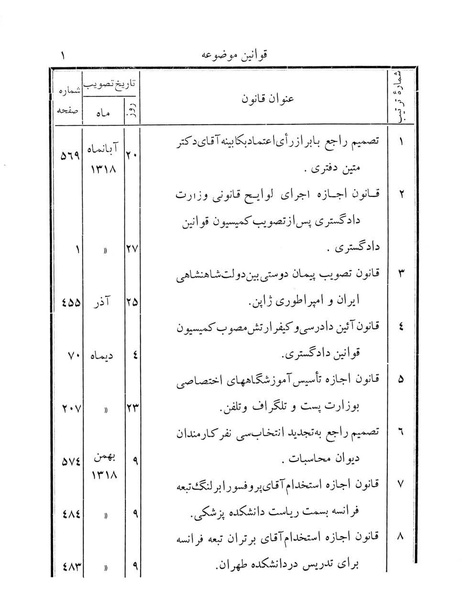 قوانین موضوعه ۱
شمارهٔ ترتیب عنوان قانون تاریخ تصویب شماره
روز ماه صفحه
۱ تصمیم راجع بابراز رأی اعتماد بکابینه آقای دکتر
متین دفتری . ۲۰ آبانماه ۱۳۱۸ ۵۶۹
۲ قانون اجازه اجرای لوایح قانونی وزارت
دادگستری پس از تصویب کمیسیون قوانین
دادگستری . ۲۷ » ۱
۳ قانون تصویب پیمان دوستی بین دولت شاهنشاهی
ایران و امپراطوری ژاپن. ۲۵ آذر ٤٥٥
٤ قانون آئین دادرسی و کیفر ارتش مصوب کمیسیون
قوانین دادگستری. ٤ دیماه ۷۰
۵ قانون اجازه تأسیس آموزشگاههای اختصاصی
بوزارت پست و تلگراف وتلفن. ۲۳ » ۲۰۷
۶ تصمیم راجع به تجدید انتخاب سی نفر کارمندان
دیوان محاسبات . ۹ بهمن ۱۳۱۸ ۵۷٤
۷ قانون اجازه استخدام آقای پروفسور ابرلنگ تبعه
فرانسه بسمت ریاست دانشکده پزشکی. ۹ » ٤٨٤
۸ قانون اجازه استخدام آقای برتران تبعه فرانسه
برای تدریس دردانشکده طهران. ۹ » ٤٨٣